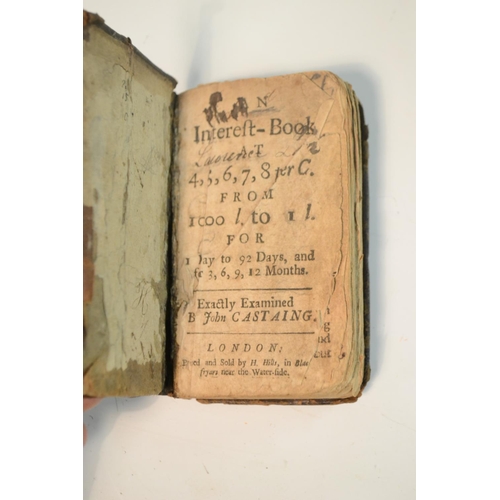 N
Interest-Book
AT
4, 5, 6, 7, 8 per C.
FROM
1000 l, to 1 l.
FOR
1 Day to 92 Days, and
3, 6, 9, 12 Months.
Exactly Examined
B John CASTAING.
LONDON:
and Sold by H. Hills, in Blac
fryers near the Water-side.